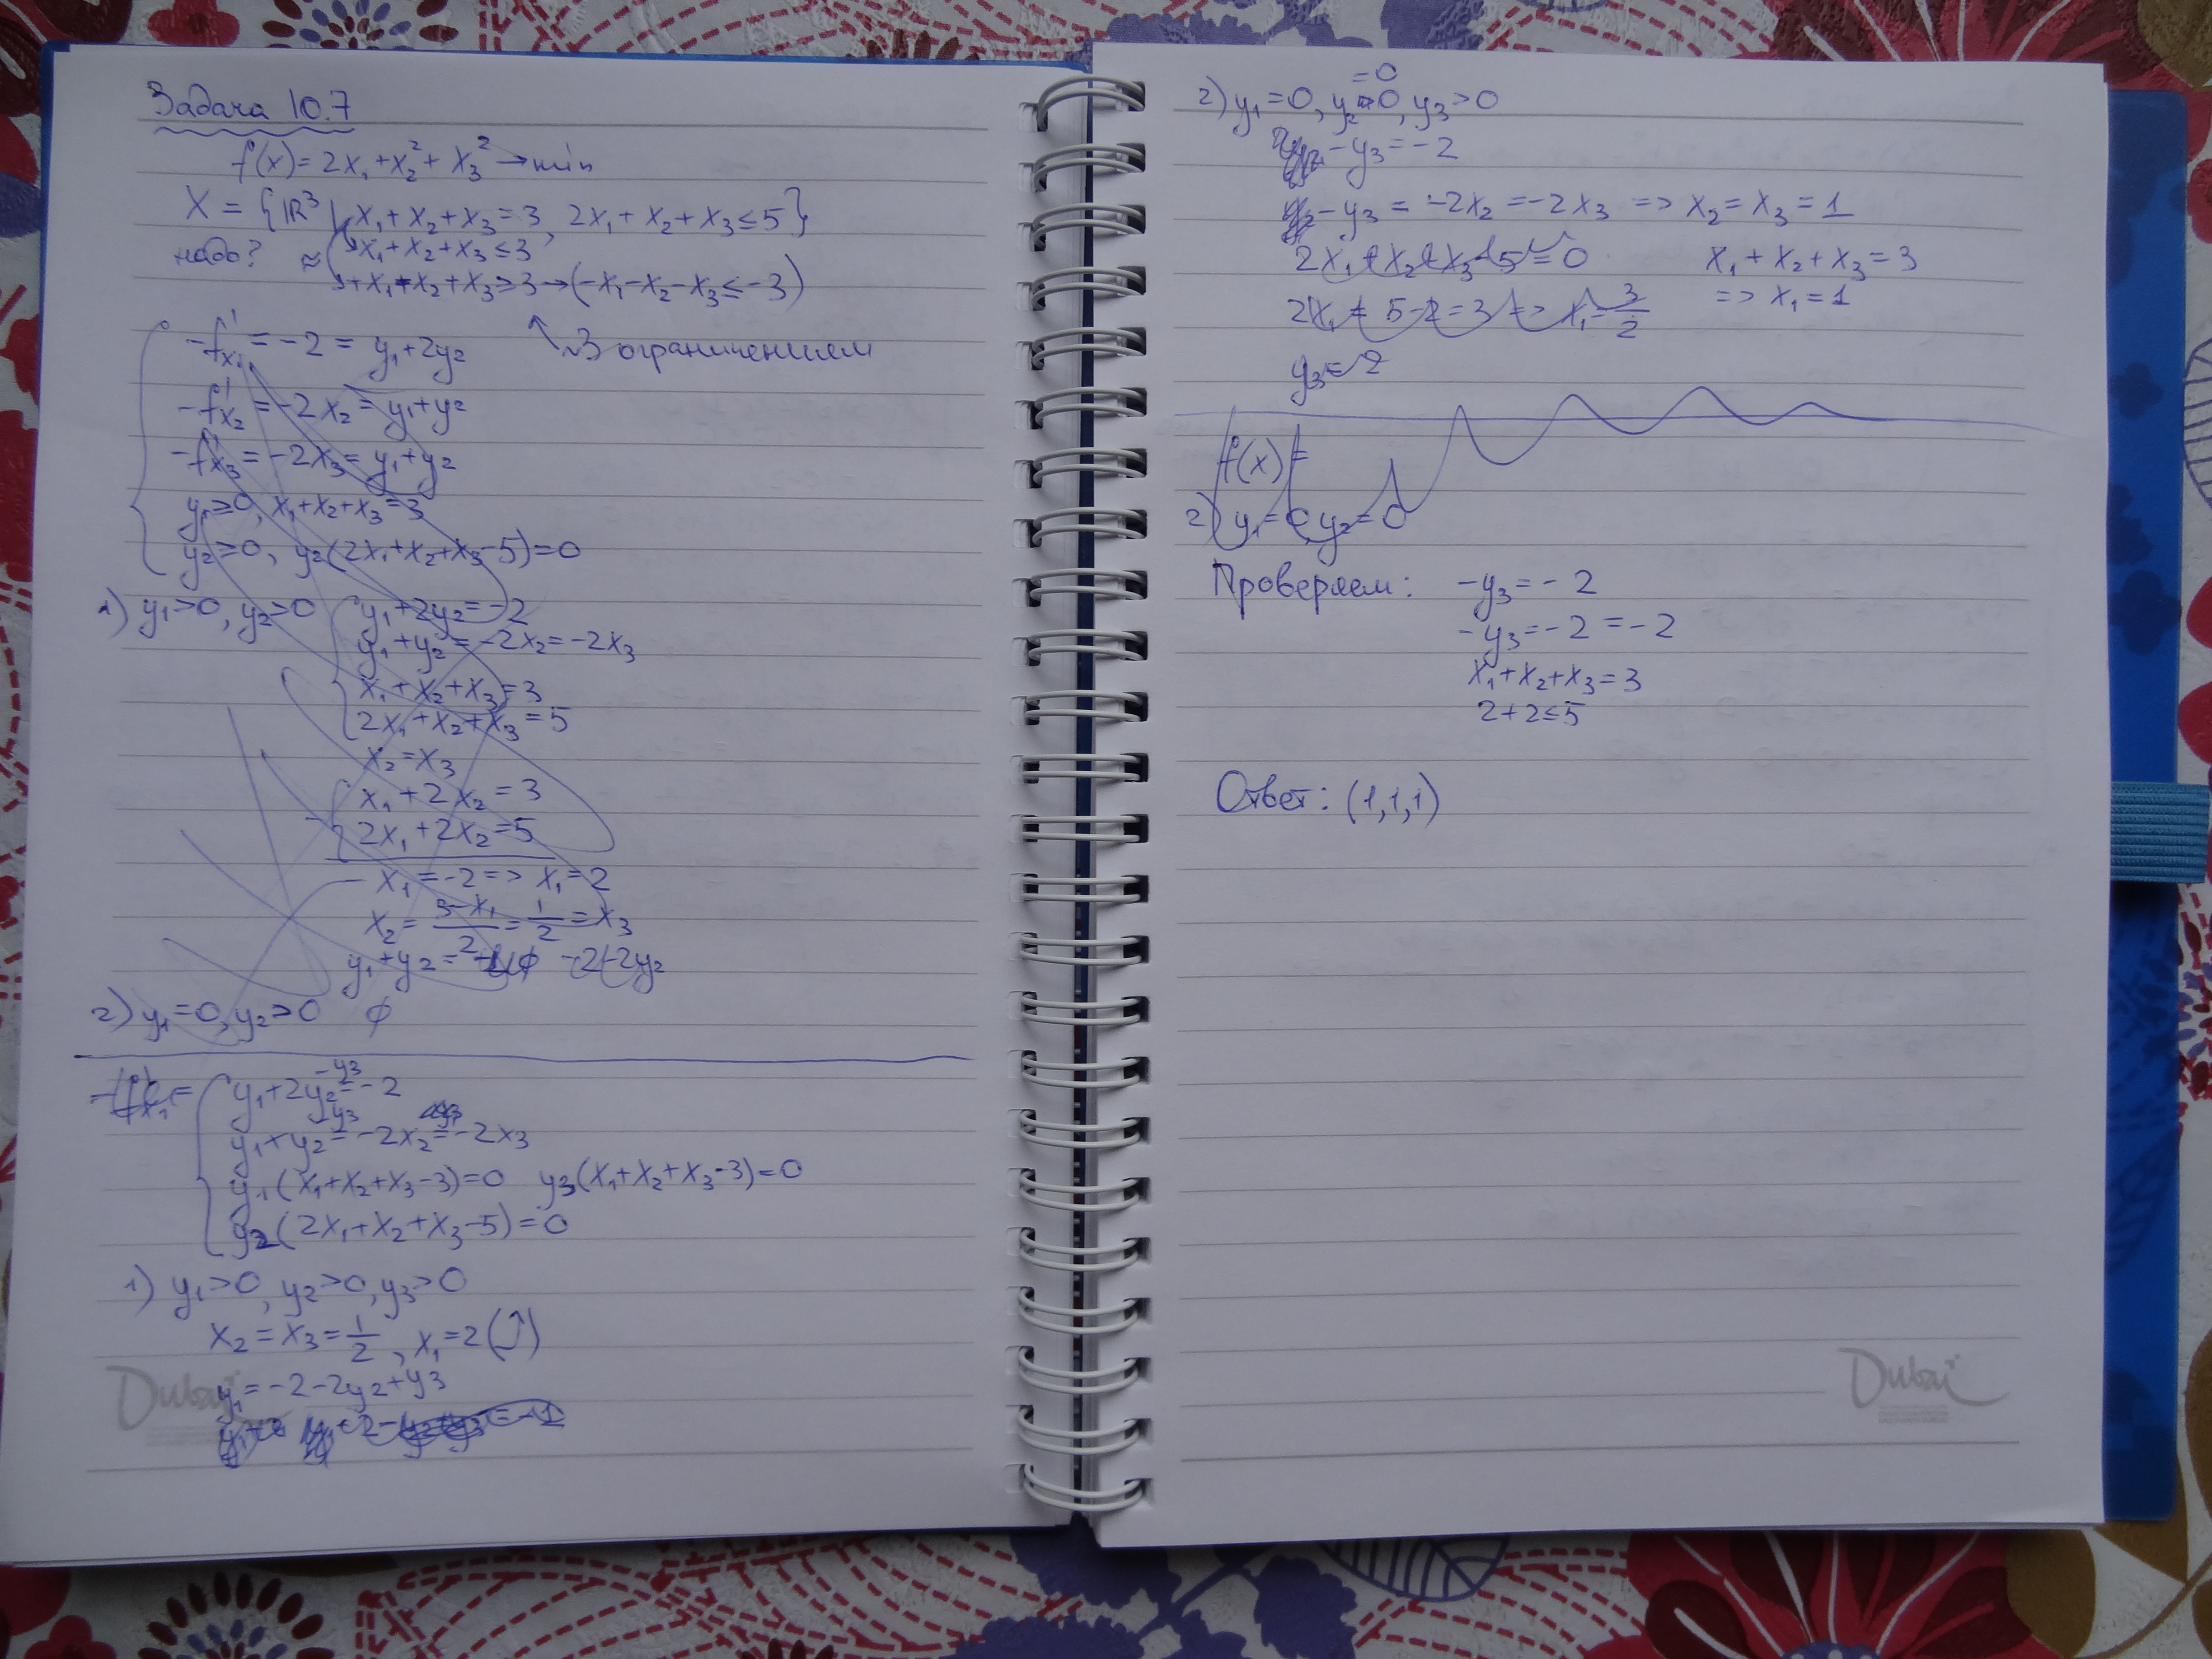 Задача 10.7
f(x) = 2x₁ + x₂² + x₃² → min
X = {ℝ³ | x₁ + x₂ + x₃ = 3, 2x₁ + x₂ + x₃ ≤ 5}
надо? ≈ x₁ + x₂ + x₃ ≤ 3
+x₁ + x₂ + x₃ ≥ 3 → (-x₁ - x₂ - x₃ ≤ -3)
-f'x₁ = -2 = y₁ + 2y₂
↖ 3 ограничением
-f'x₂ = -2x₂ = y₁ + y₂
-f'x₃ = -2x₃ = y₁ + y₂
y₁ ≥ 0, x₁ + x₂ + x₃ = 3
y₂ ≥ 0, y₂(2x₁ + x₂ + x₃ - 5) = 0
1) y₁ > 0, y₂ > 0 { y₁ + 2y₂ = -2
y₁ + y₂ = -2x₂ = -2x₃
x₁ + x₂ + x₃ = 3
2x₁ + x₂ + x₃ = 5
x₂ = x₃
x₁ + 2x₂ = 3
2x₁ + 2x₂ = 5
- x₁ = -2 => x₁ = 2
x₂ = (3 - x₁)/2 = 1/2 = x₃
y₁ + y₂ = -2 - 2y₂
2) y₁ = 0, y₂ > 0 ∅
{ y₁ + 2y₂ - y₃ = -2
y₁ + y₂ - y₃ = -2x₂ = -2x₃
y₁(x₁ + x₂ + x₃ - 3) = 0 y₃(x₁ + x₂ + x₃ - 3) = 0
y₂(2x₁ + x₂ + x₃ - 5) = 0
1) y₁ > 0, y₂ > 0, y₃ > 0
x₂ = x₃ = 1/2, x₁ = 2 (⤴)
y₁ = -2 - 2y₂ + y₃
Dubai
2) y₁ = 0, y₂ = 0, y₃ > 0
- y₃ = -2
- y₃ = -2x₂ = -2x₃ => x₂ = x₃ = 1
2x₁ + x₂ + x₃ - 5 = 0 x₁ + x₂ + x₃ = 3
2x₁ = 5 - 2 = 3 => x₁ = 3/2 => x₁ = 1
y₃ = 2
f(x) =
2) y₁ = 0, y₂ = 0
Проверяем: -y₃ = -2
-y₃ = -2 = -2
x₁ + x₂ + x₃ = 3
2 + 2 ≤ 5
Ответ: (1, 1, 1)
Dubai